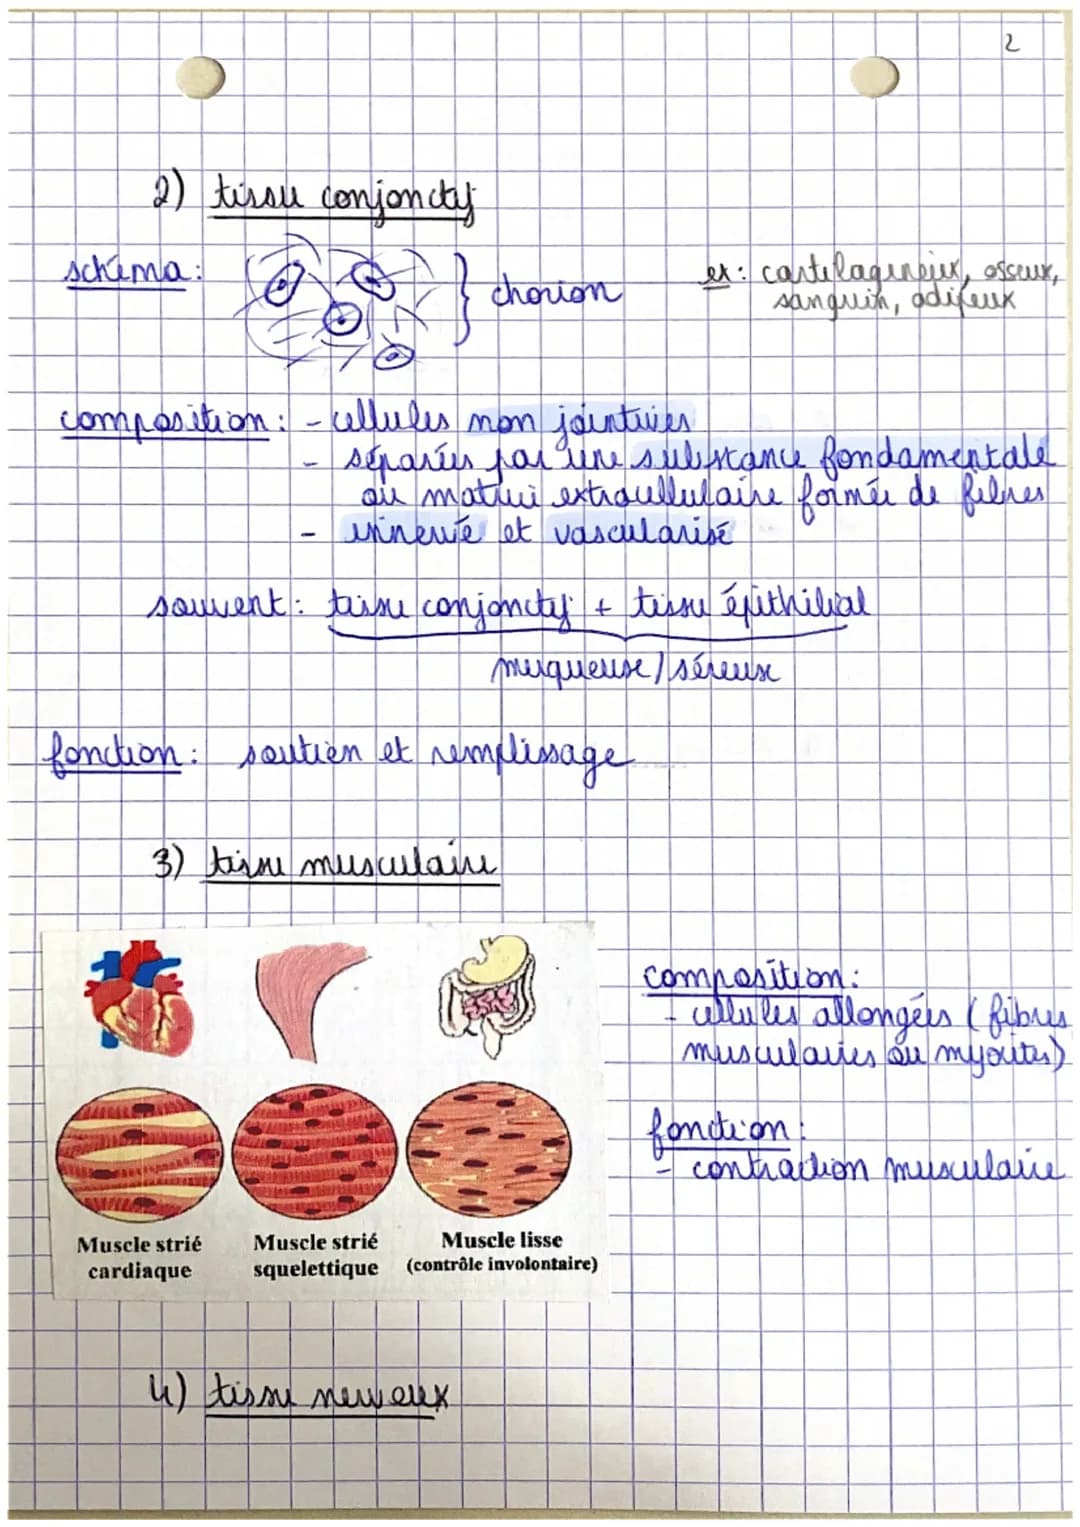 2
2) tissu conjonctif
schéma:
chorion
ex: cartilagineux, osseux,
sanguin, adipeux
composition: - cellules non jointives
- séparées par une substance fondamentale
ou matrice extracellulaire formée de fibres
- innervé et vascularisé
souvent: tissu conjonctif + tissu épithélial
muqueuse / séreuse
fonction: soutien et remplissage
3) tissu musculaire
composition:
- cellules allongées (fibres
musculaires ou myocites)
fonction:
- contraction musculaire
Muscle strié
cardiaque
Muscle strié
squelettique
Muscle lisse
(contrôle involontaire)
4) tissu nerveux